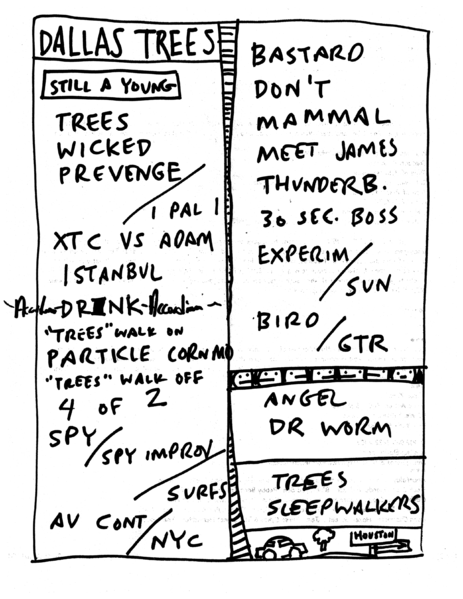 DALLAS TREES
STILL A YOUNG
TREES
WICKED
PREVENGE
1 PAL 1
XTC VS ADAM
ISTANBUL
Accordion DRINK Accordion
"TREES" WALK ON
PARTICLE CORN MO
"TREES" WALK OFF
4 OF 2
SPY
SPY IMPROV
SURFS
AV CONT
NYC
BASTARD
DON'T
MAMMAL
MEET JAMES
THUNDERB.
30 SEC. BOSS
EXPERIM
SUN
BIRD
GTR
ANGEL
DR WORM
TREES
SLEEPWALKERS
HOUSTON